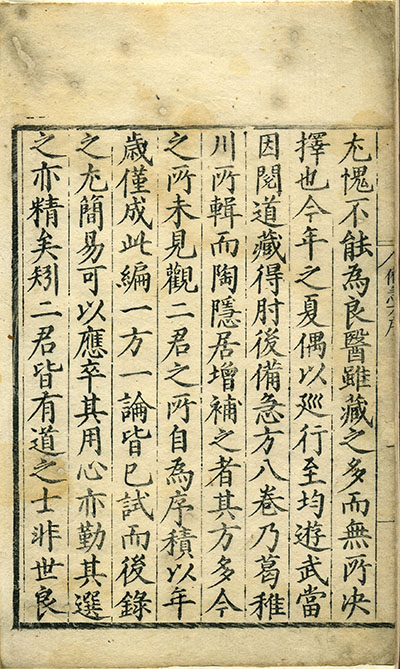 尤愧不能為良醫雖藏之多而無所决
擇也今年之夏偶以廵行至均遊武當
因閱道藏得肘後備急方八卷乃葛稚
川所輯而陶隱居增補之者其方多今
之所未見觀二君之所自為序積以年
歲僅成此編一方一論皆已試而後錄
之尤簡易可以應卒其用心亦勤其選
之亦精矣矧二君皆有道之士非世良